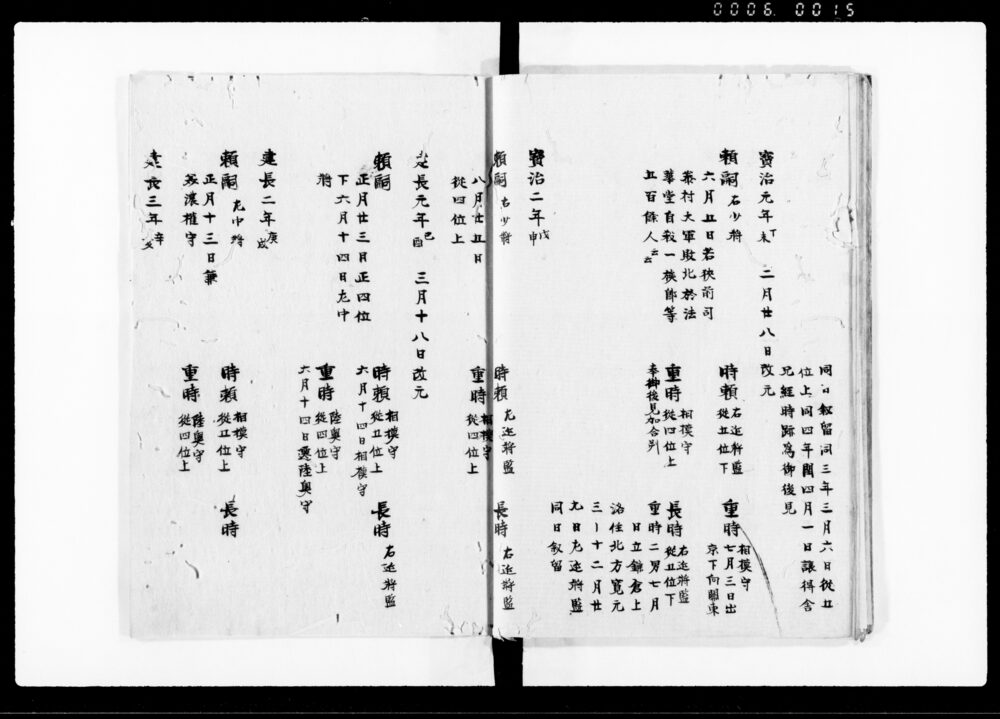 0006.0015
同日叙留同三年三月六日從五
位上同四年閏四月一日讓得舎
兄經時跡為御後見
寳治元年丁未 二月廿八日改元
頼嗣 右少将
六月五日若狹前司
泰村大軍敗北於法
華堂自殺一族郎等
五百餘人云云
時頼 右近将監 從五位下
重時 相摸守 七月三日出京下向關東
重時 相摸守 從四位上
奉御後見加合判
長時 右近将監 從五位下
重時二男七月
日立鎌倉上
洛住北方寛元
三ー十二月廿
九日左近将監
同日叙留
寳治二年戊申
頼嗣 右少将
八月廿五日
從四位上
時頼 左近将監
重時 相摸守 從四位上
長時 右近将監
建長元年己酉 三月十八日改元
頼嗣
正月廿三日正四位
下六月十四日左中
将
時頼 相摸守 從五位上
六月十四日相摸守
重時 陸奥守 從四位上
六月十四日遷陸奥守
長時 右近将監
建長二年庚戌
頼嗣 左中将
正月十三日兼
美濃權守
時頼 相摸守 從五位上
重時 陸奥守 從四位上
長時
建長三年辛亥